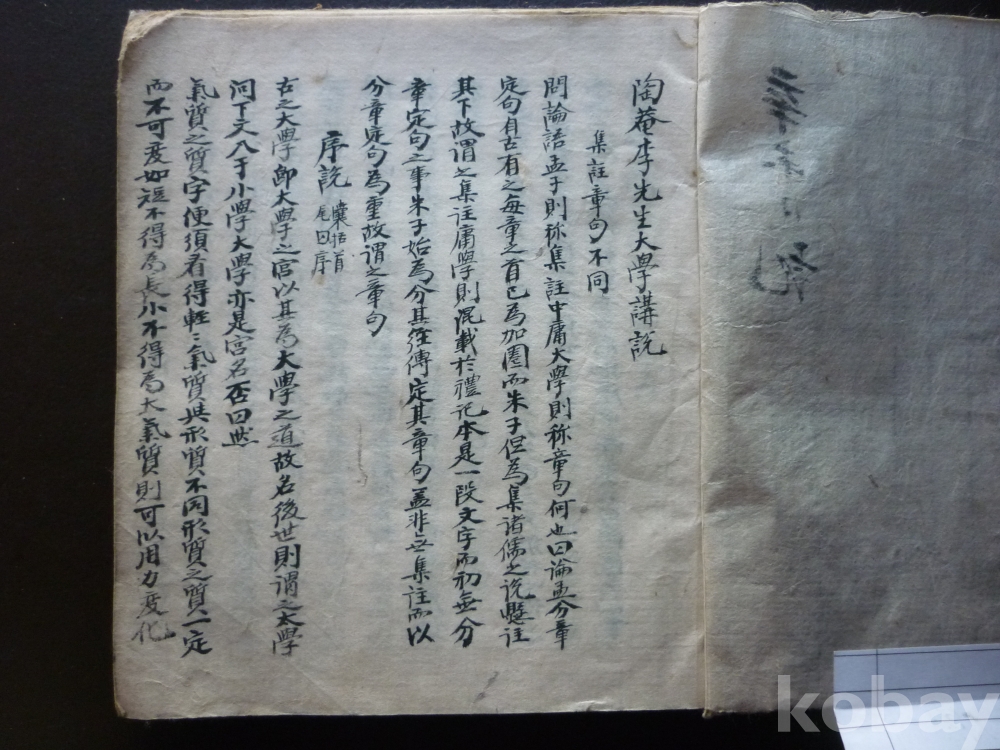 陶菴李先生大學講說
集註章句不同
問論語孟子則称集註中庸大學則称章句何也曰論孟分章
定句自古有之每章之首已為加圈而朱子但為集諸儒之說懸註
其下故謂之集註庸學則混載於禮記本是一段文字而初無分
章定句之事朱子始為分其經傳定其章句盖非無集註而以
分章定句為重故謂之章句
序說
櫽括首
尾曰序
古之大學卽大學之宮以其為大學之道故名後世則謂之太學
河下文入于小學大學亦是宮名否曰然
氣質之質字便須看得軽〻氣質與形質不同形質之質一定
而不可変如短不得為長小不得為大氣質則可以用力変化
kobay